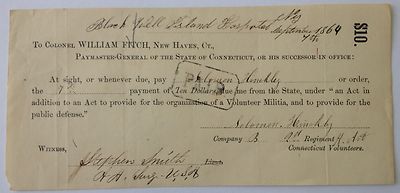 Black Well Island Hospital N.Y.
September 7th 1864
$10.
To Colonel WILLIAM FITCH, New Haven, Ct.,
Paymaster-General of the State of Connecticut, or his successor in office:
At sight, or whenever due, pay Solomon Hinckly or order,
the 7th payment of Ten Dollars due me from the State, under "an Act in
addition to an Act to provide for the organization of a Volunteer Militia, and to provide for the
public defense."
PAID
Solomon Hinckly
Company B Regiment
Connecticut Volunteers.
Witness,
Stephen Smith
A. A. Surg. U.S.A.